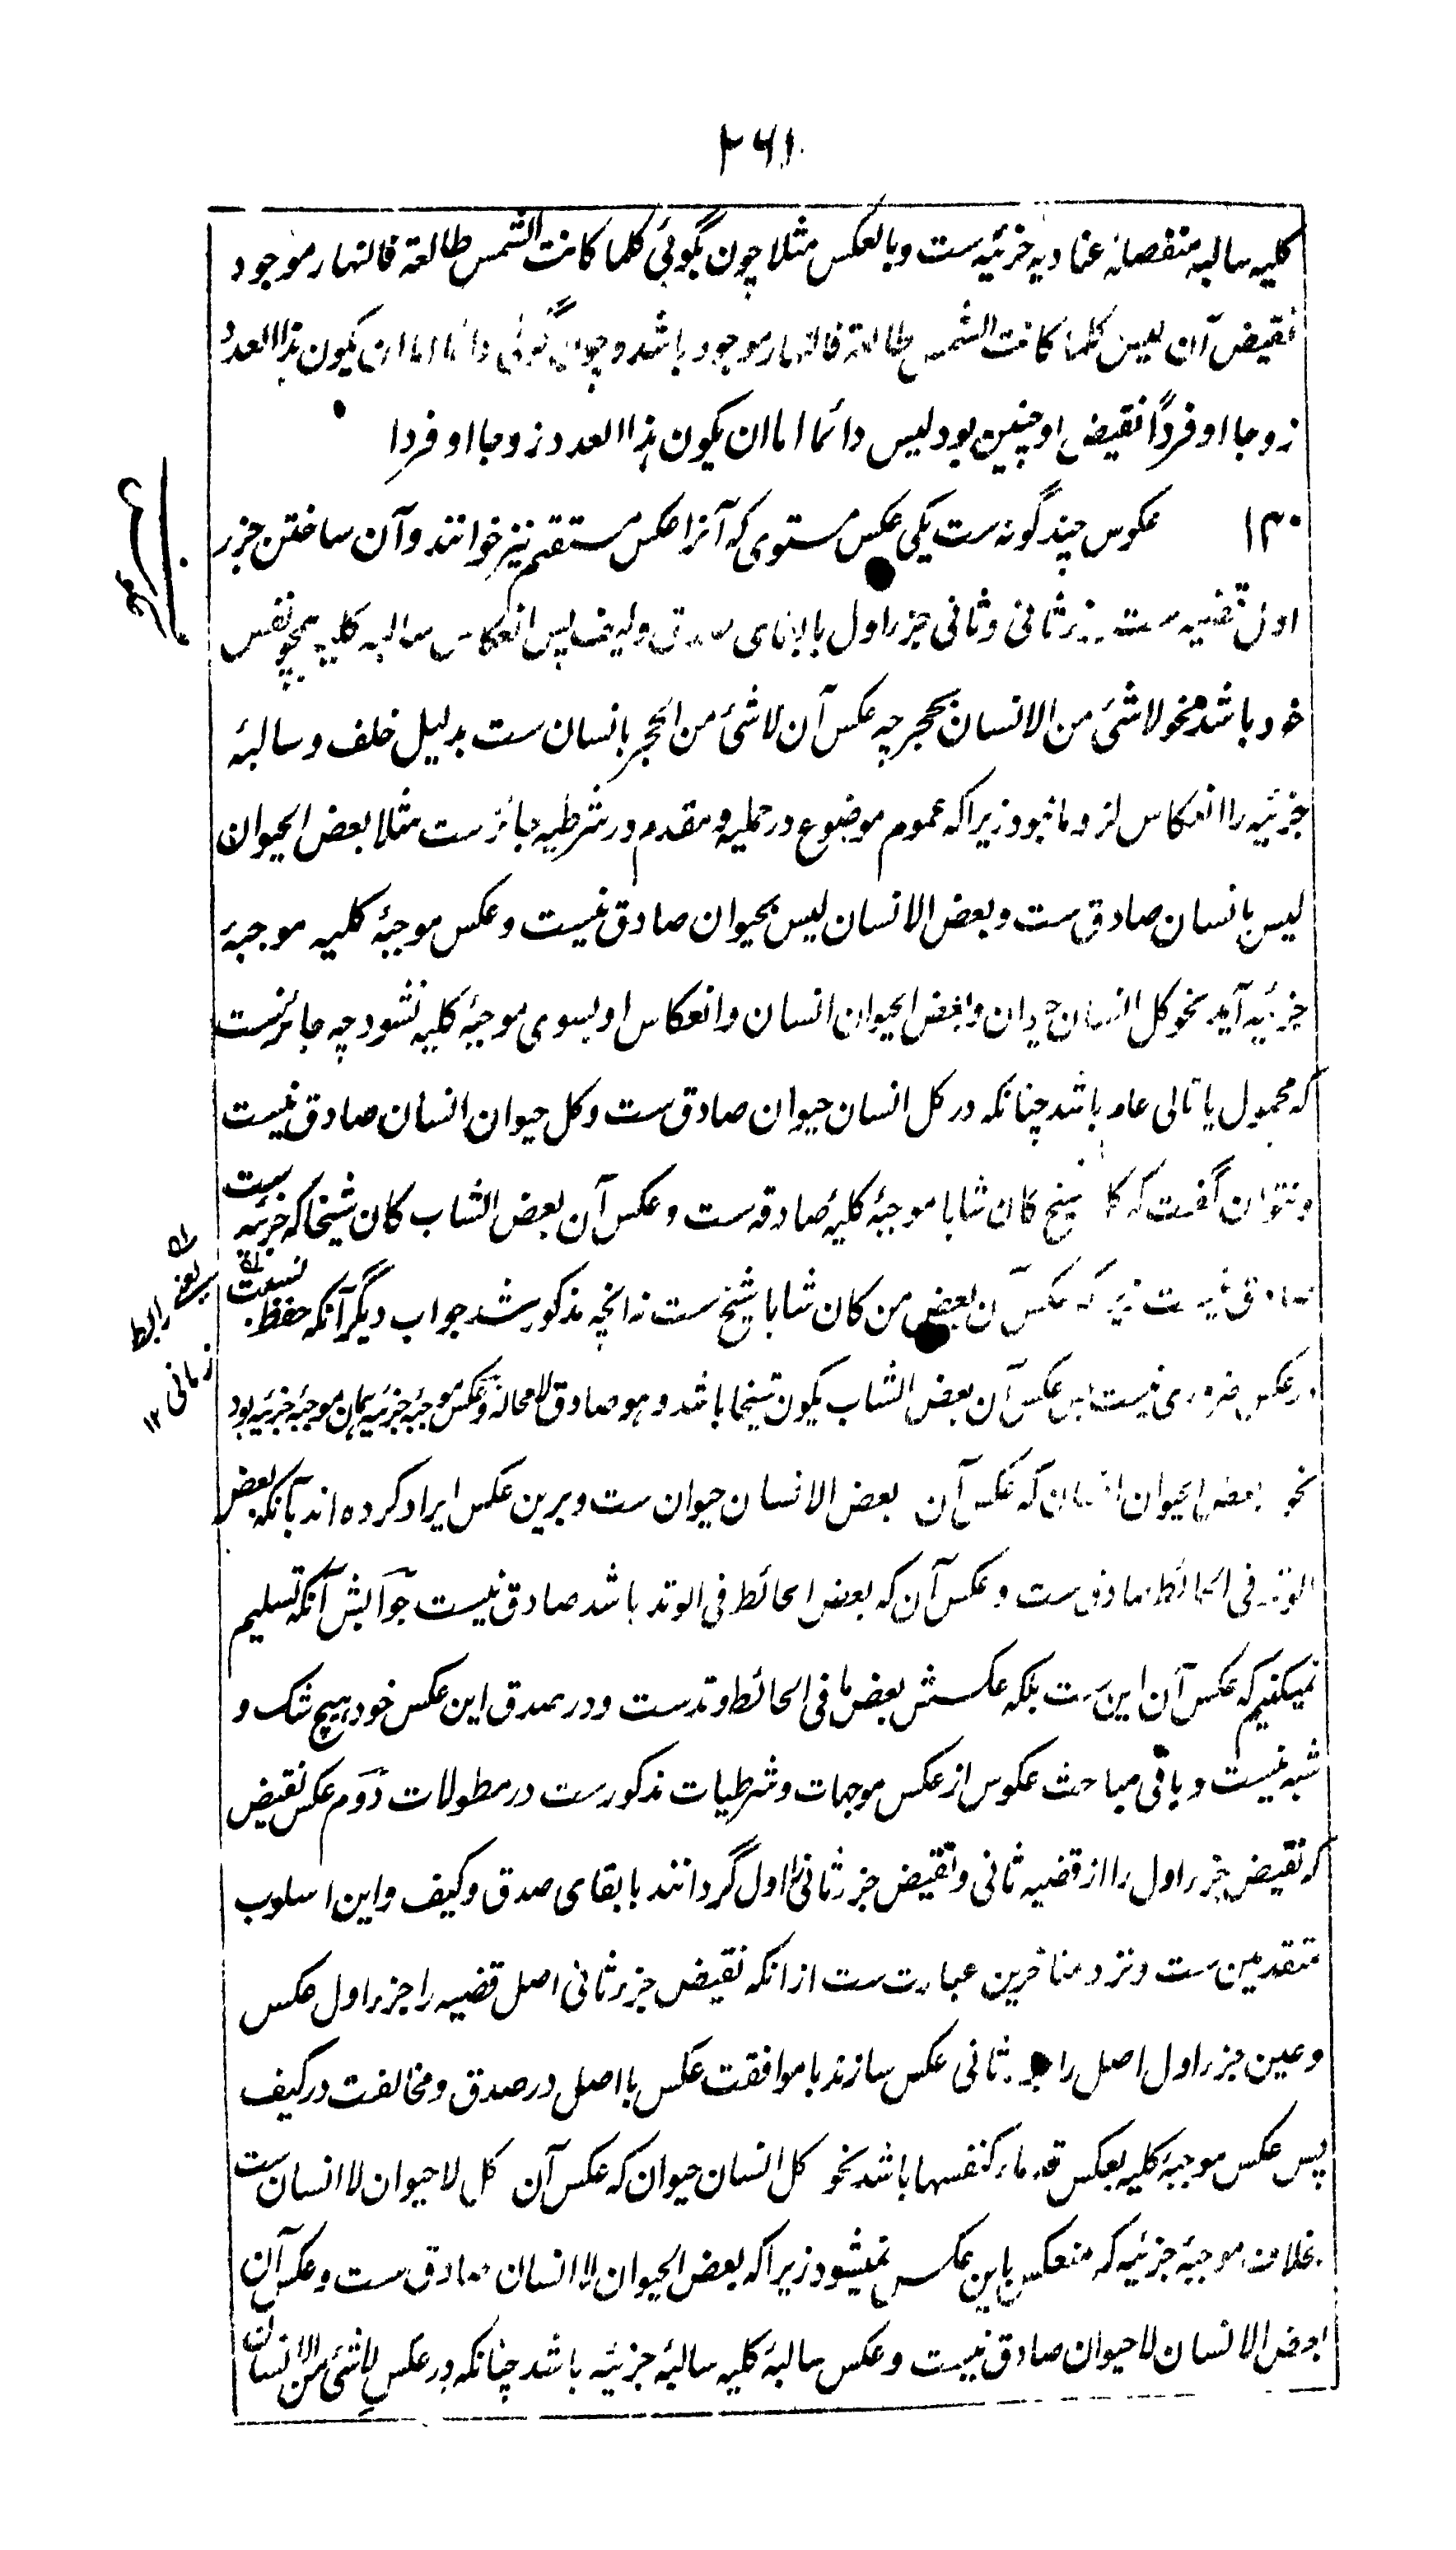 ۲۶۱
کلیه سالبه منفصله عنادیه جزئیه ست و بالعکس مثلا چون بگوئی کلما کانت الشمس طالعة فالنهار موجود
نقیض آن لیس کلما کانت الشمس طالعة فالنهار موجود باشد و چون گوئی دائما اما ان یکون هذا العدد
زوجا او فرداً نقیض او چنین بود لیس دائما اما ان یکون هذا العدد زوجا او فردا
عکوس چند گونه ست یکی عکس مستوی که آنرا عکس مستقیم نیز خوانند و آن ساختن جزر
اول قضیه ست جزر ثانی و ثانی جزر اول با بقای صدق و کیف پس انعکاس سالبه کلیه همچو نفس
خود باشد نحو لاشئ من الانسان بحجر چه عکس آن لاشئ من الحجر بانسان ست بدلیل خلف و سالبۀ
جزئیه را انعکاس لزوما نبود زیرا که عموم موضوع در حملیه و مقدم در شرطیه جائز ست مثلا بعض الحیوان
لیس بانسان صادق ست و بعض الانسان لیس بحیوان صادق نیست و عکس موجبۀ کلیه موجبۀ
جزئیه آید نحو کل انسان حیوان و بعض الحیوان انسان و انعکاس او بسوی موجبۀ کلیه نشود چه جائزست
که محمول یا تالی عام باشد چنانکه در کل انسان حیوان صادق ست و کل حیوان انسان صادق نیست
و نتوان گفت که کل شیخ کان شابا موجبۀ کلیۀ صادقه ست و عکس آن بعض الشاب کان شیخا که جزئیه ست
صادق نیست زیرا که عکس آن بعض من کان شابا شیخ ست نه انچه مذکور شد جواب دیگر آنکه حفظ نسبت
در عکس ضروری نیست پس عکس آن بعض الشاب یکون شیخا باشد و هو صادق لا محالة و عکس موجبۀ جزئیه همان موجبۀ جزئیه بود
نحو بعض الحیوان انسان که عکس آن بعض الانسان حیوان ست و برین عکس ایراد کرده اند بآنکه بعض
الوتد فی الحائط صادق ست و عکس آن که بعض الحائط فی الوتد باشد صادق نیست جوابش آنکه تسلیم
نمیکنیم که عکس آن این ست بلکه عکسش بعض ما فی الحائط وتد ست و در صدق این عکس خود هیچ شک و
شبه نیست و باقی مباحث عکوس از عکس موجهات و شرطیات مذکور ست در مطولات دوم عکس نقیض
که نقیض جزر اول را از قضیه ثانی و نقیض جزر ثانی را اول گردانند با بقای صدق و کیف و این اسلوب
متقدمین ست و نزد متاخرین عبارت ست ازانکه نقیض جزر ثانی اصل قضیه را جزر اول عکس
و عین جزر اول اصل را جزر ثانی عکس سازند با موافقت عکس با اصل در صدق و مخالفت در کیف
پس عکس موجبۀ کلیه بعکس قدماء کنفسها باشد نحو کل انسان حیوان که عکس آن کل لا حیوان لا انسان ست
بخلاف موجبۀ جزئیه که منعکس باین عکس نمیشود زیرا که بعض الحیوان لا انسان صادق ست و عکس آن
بعض الانسان لا حیوان صادق نیست و عکس سالبۀ کلیه سالبۀ جزئیه باشد چنانکه در عکس لاشئ من الانسان
یعنی رابطه
زمانی ۱۲